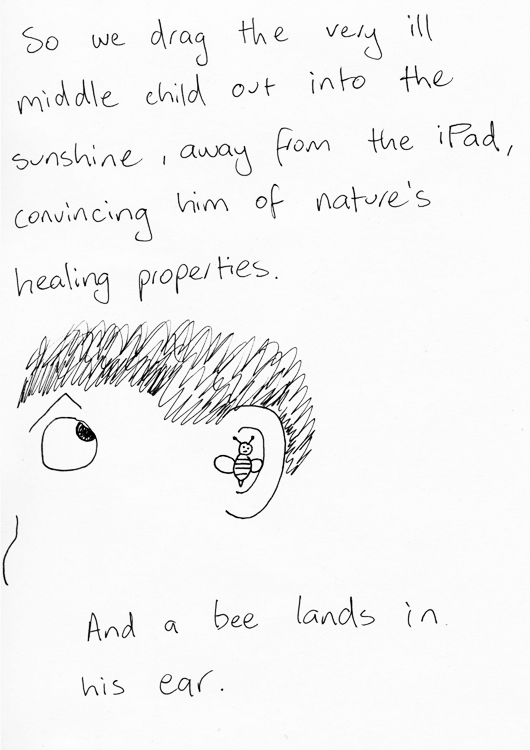 So we drag the very ill
middle child out into the
sunshine, away from the iPad,
convincing him of nature's
healing properties.
And a bee lands in
his ear.